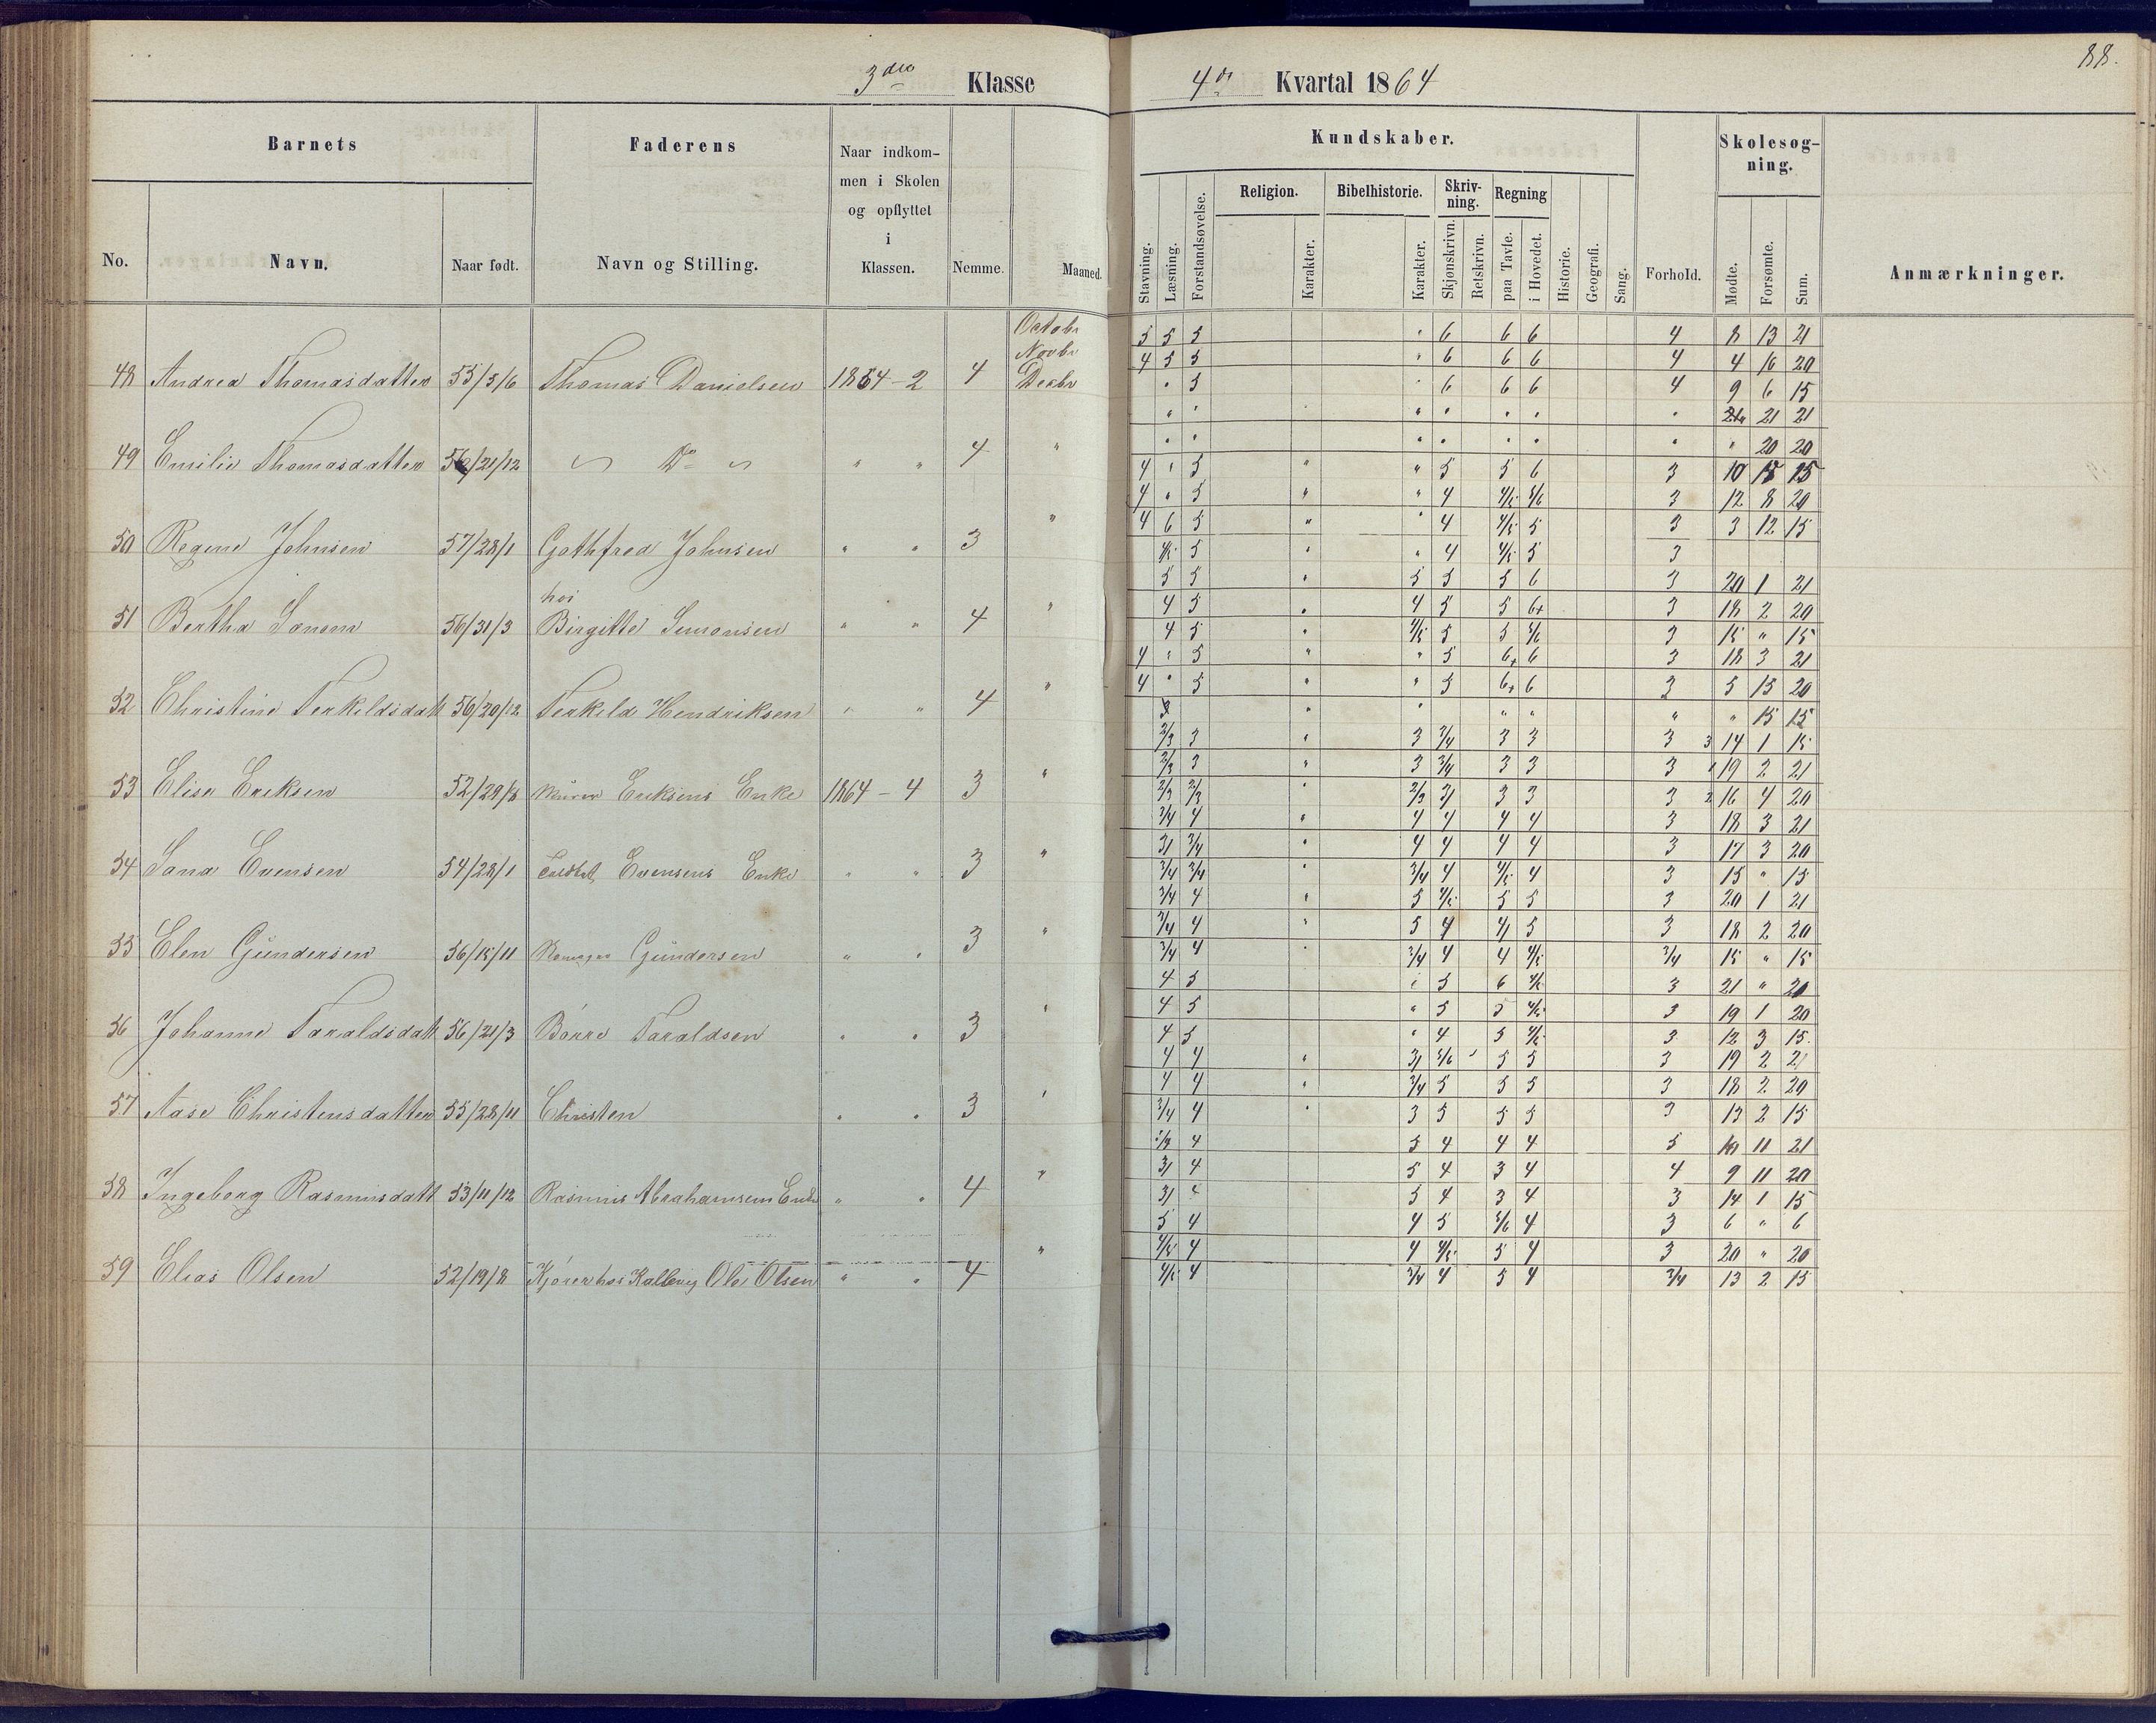 88.
3die Klasse
4de Kvartal 1864
Barnets
Faderens
Naar indkom-
men i Skolen
og opflyttet
i
Klassen.
Nemme.
Maaned.
No.
Navn.
Naar født.
Navn og Stilling.
Kundskaber.
Skolesøg-
ning.
Religion.
Bibelhistorie.
Skriv-
ning.
Regning
Stavning.
Læsning.
Forstandsøvelse.
Karakter.
Karakter.
Skjønskrivn.
Retskrivn.
paa Tavle.
i Hovedet.
Historie.
Geografi.
Sang.
Forhold.
Mødte.
Forsømte.
Sum.
Anmærkninger.
Octobr
Novbr
48 Andrea Thomasdatter 55/5/6 Thomas Danielsen 1864-2 4 Decbr
49 Emilie Thomasdatter 56/21/12 Do " " 4 "
50 Regine Johnsen 57/28/1 Gothfred Johnsen " " 3 "
hos
51 Bertha 56/31/3 Birgitte Simonsen " " 4 "
52 Christine Terkildsdatt 56/20/12 Terkild Hendriksen " " 4 "
53 Elise Eriksen 52/29/8 Murer Eriksens Enke 1864-4 3 "
54 Evensen 54/28/1 Evensens Enke " " 3 "
55 Elen Gundersen 56/15/11 Gundersen " " 3 "
56 Johanne Taraldsdatt 56/21/3 Børre Taraldsen " " 3 "
57 Aase Christensdatter 55/28/11 Christen " " 3 "
58 Ingeborg Rasmusdatt 53/11/12 Rasmus Abrahamsens Enke " " 4 "
59 Elias Olsen 52/19/8 Kjører hos Kallevig Ole Olsen " " 4 "
5 5 5 " 6 6 6 4 8 13 21
4 5 5 " 6 6 6 4 4 16 20
" 5 " 6 6 6 4 9 6 15
" " " " " " " 21 21
" " " " " " " " 20 20
4 " 5 " " 5 5 6 3 10
4 " 5 " " 4 4/5 5/6 3 12 8 20
4 6 5 " " 4 4/5 5 3 3 12 15
4/5 5 " " 4 4/5 5 3
5 5 " 5 5 5 6 3 20 1 21
4 5 " 4 5 5 6+ 3 18 2 20
4 5 " 4/5 5 5 5/6 3 15 " 15
4 " 5 " " 5 6+ 6 3 18 3 21
4 " 5 " " 5 6+ 6 3 5 15 20
" " " " " " 15 15
2/3 3 " 3 3/4 3 3 3 3 14 1 15
2/3 3 " 3 3/4 3 3 3 19 2 21
2/3 2/3 " 2/3 3/ 3 3 3 2 16 4 20
3/4 4 " 4 4 4 4 3 18 3 21
3/ 3/4 " 4 4 4 4 3 17 3 20
3/4 3/4 " 3/4 4 4/5 4 3 15 " 15
3/4 4 " 5 4/5 5 5 3 20 1 21
3/4 4 " 5 4 4/ 5 3 18 2 20
3/4 4 " 3/4 4 4 4/5 3/4 15 " 15
4 5 " 5 6 4/5 3 21 " 20
4 5 " 5 5 4/5 3 19 1 20
4 5 " 4 5 4/5 3 12 3 15
4 4 " 3/ 5/6 5 5 3 19 2 21
4 4 " 3/4 5 5 5 3 18 2 20
3/4 4 " 3 5 5 5 3 13 2 15
4 5 4 4 4 5 10 11 21
3/ 4 5 4 3 4 4 9 11 20
3/ 4 5 4 3 4 3 14 1 15
5 4 4 5 5/6 4 3 6 " 6
4/5 4 4 4/5 5 4 3 20 " 20
4/5 4 3/4 4 5 4 3/4 13 2 15